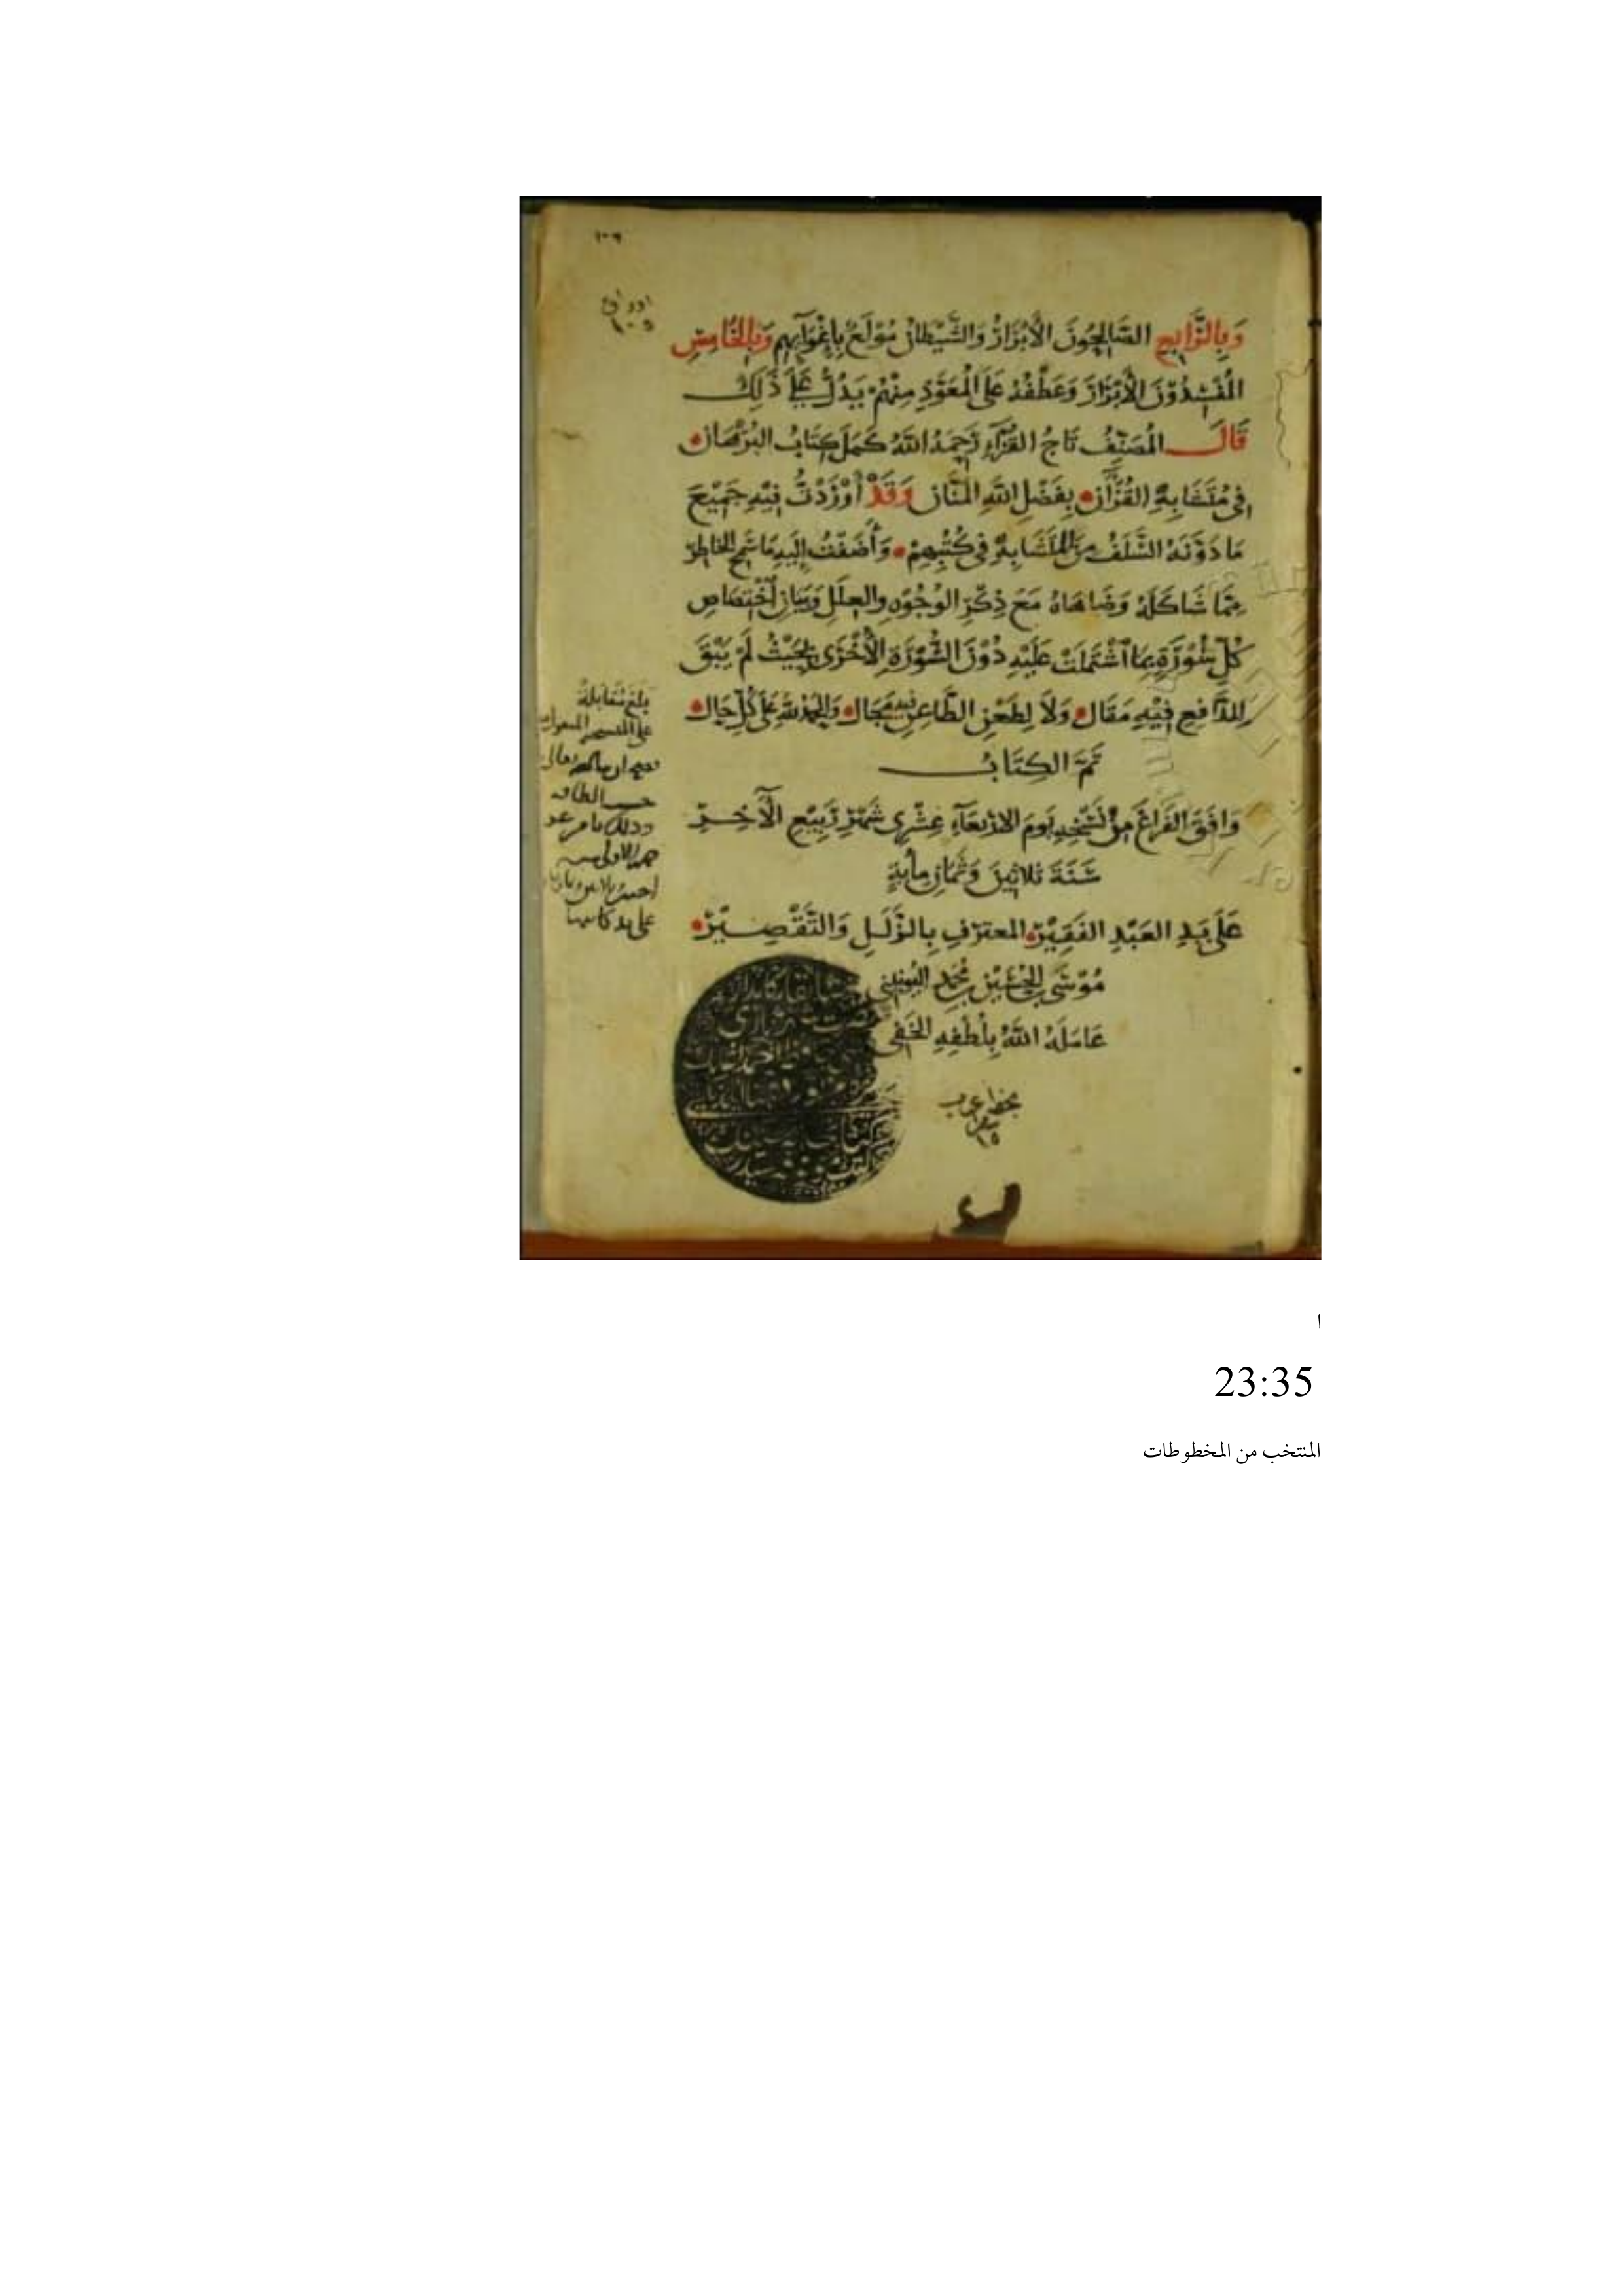 ١٠٦
اوراق
١٠٥
وَبِالرَّابِعِ الصَّالِحُونَ الأَبْرَارُ وَالشَّيْطَانُ مُوْلَعٌ بِإِغْوَآيِهِمْ وَبِالْخَامِسِ
المُفْسِدُوْنَ الأَبْرَارَ وَعَطْفُهُ عَلَى الْمُعَوَّذِ مِنْهُمْ يَدُلُّ عَلَى ذَلِكَ
قَالَ المُصَنِّفُ تَاجُ القُرَّآءِ رَحِمَهُ اللَّهُ كَمَلَ كِتَابُ البُرْهَانِ
فِي مُتَشَابِهِ القُرْآنِ بِفَضْلِ اللَّهِ المَنَّانِ وَقَدْ أَوْرَدْتُ فِيْهِ جَمِيْعَ
مَا دَوَّنَهُ السَّلَفُ مِنَ المُتَشَابِهِ فِي كُتُبِهِمْ وَأَضَفْتُ إِلَيْهِ مَا سَمَحَ الخَاطِرُ
مِمَّا شَاكَلَهُ وَضَاهَاهُ مَعَ ذِكْرِ الوُجُوْهِ وَالعِلَلِ وَبَيَانِ اخْتِصَاصِ
كُلِّ سُوْرَةٍ بِمَا اشْتَمَلَتْ عَلَيْهِ دُوْنَ السُّوْرَةِ الأُخْرَى بِحَيْثُ لَمْ يَبْقَ
لِلدَّافِعِ فِيْهِ مَقَالٌ وَلاَ لِطَعْنِ الطَّاعِنِ فِيْهِ مَجَالٌ وَالْحَمْدُ لِلَّهِ عَلَى كُلِّ حَالٍ
تَمَّ الكِتَابُ
وَافَقَ الفَرَاغَ مِنْ نَسْخِهِ يَوْمَ الأَرْبِعَآءِ عِشْرِي شَهْرِ رَبِيْعِ الآخِرِ
سَنَةَ ثَلاثِيْنَ وَثَمَانِ مِأيَةٍ
عَلَى يَدِ العَبْدِ الفَقِيْرِ المعترِفِ بِالزَّلَلِ وَالتَّقْصِيْرِ
مُوْسَى بْنِ الحُسَيْنِ بْنِ مُحَمَّدٍ اليُونِيْنِي
عَامَلَهُ اللَّهُ بِلُطْفِهِ الخَفِي
بلغ مقابلة
على النسخة المنقول
حسب الطاقة
على يد كاتبها
بخط عرب
سطر
١٥
ا
23:35
المنتخب من المخطوطات